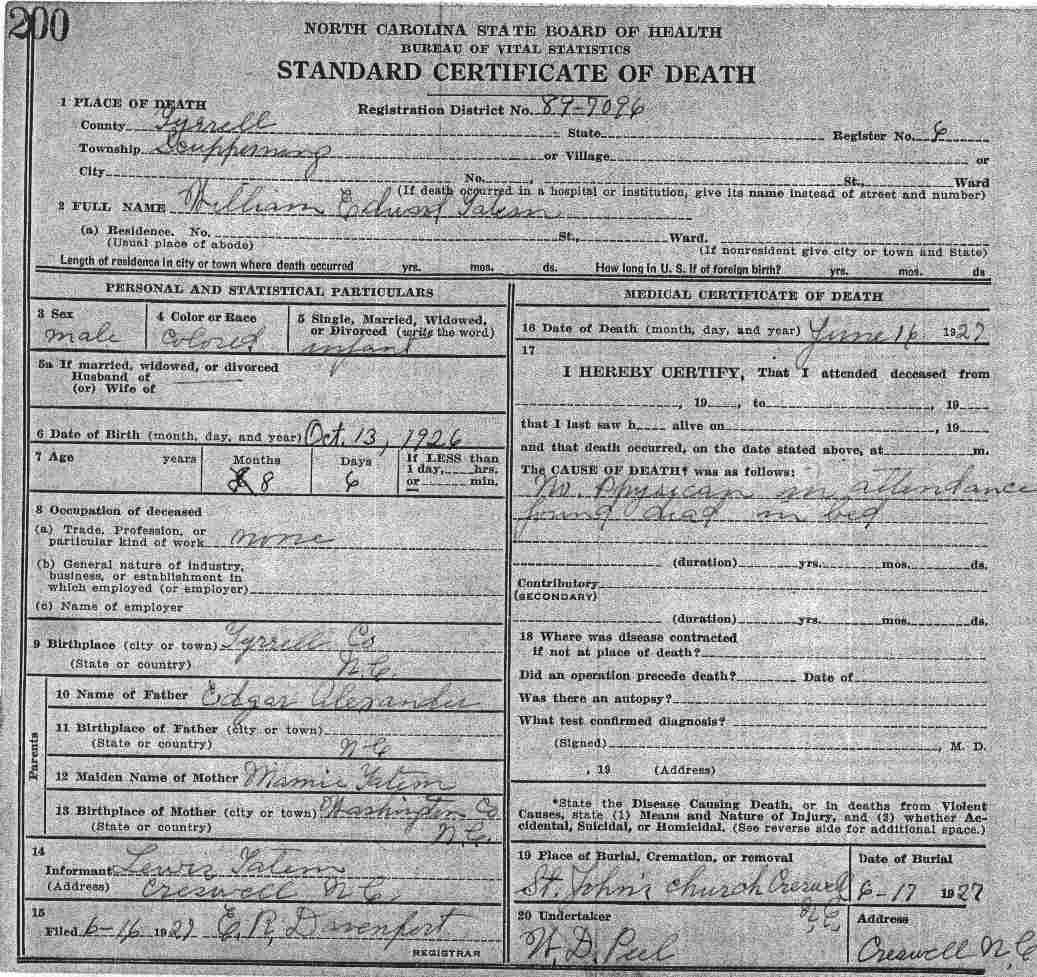 200
NORTH CAROLINA STATE BOARD OF HEALTH
BUREAU OF VITAL STATISTICS
STANDARD CERTIFICATE OF DEATH
1 PLACE OF DEATH Registration District No. 89-7096
County Tyrrell State Register No. 6
Township Scuppernong or Village or
City No. St., Ward
(If death occurred in a hospital or institution, give its name instead of street and number)
2 FULL NAME William Edund Tatem
(a) Residence. No. St., Ward.
(Usual place of abode) (If nonresident give city or town and State)
Length of residence in city or town where death occurred yrs. mos. ds. How long in U. S. if of foreign birth? yrs. mos. ds
PERSONAL AND STATISTICAL PARTICULARS
3 Sex 4 Color or Race 5 Single, Married, Widowed,
or Divorced (write the word)
male colored infant
5a If married, widowed, or divorced
Husband of
(or) Wife of
6 Date of Birth (month, day, and year) Oct. 13, 1926
7 Age years Months Days If LESS than
1 day, hrs.
or min.
8 6
8 Occupation of deceased
(a) Trade, Profession, or
particular kind of work none
(b) General nature of industry,
business, or establishment in
which employed (or employer)
(c) Name of employer
9 Birthplace (city or town) Tyrrell Co
(State or country) N.C.
Parents
10 Name of Father Edgar Alexander
11 Birthplace of Father (city or town)
(State or country) N C
12 Maiden Name of Mother Mamie Tatem
13 Birthplace of Mother (city or town) Washington Co.
(State or country) N.C.
14
Informant Lewis Tatem
(Address) Creswell N C
15
Filed 6-16 1927 E. R. Davenport
REGISTRAR
MEDICAL CERTIFICATE OF DEATH
16 Date of Death (month, day, and year) June 16 1927
17
I HEREBY CERTIFY, That I attended deceased from
, 19 , to , 19
that I last saw h alive on , 19
and that death occurred, on the date stated above, at m.
The CAUSE OF DEATH† was as follows:
No. Physican in attendance
found dead in bed
(duration) yrs. mos. ds.
Contributory
(SECONDARY)
(duration) yrs. mos. ds.
18 Where was disease contracted
if not at place of death?
Did an operation precede death? Date of
Was there an autopsy?
What test confirmed diagnosis?
(Signed) , M. D.
, 19 (Address)
*State the Disease Causing Death, or in deaths from Violent
Causes, state (1) Means and Nature of Injury, and (2) whether Ac-
cidental, Suicidal, or Homicidal. (See reverse side for additional space.)
19 Place of Burial, Cremation, or removal Date of Burial
St. John's church Creswell 6-17 1927
N.C.
20 Undertaker Address
W. D. Peel Creswell N. C